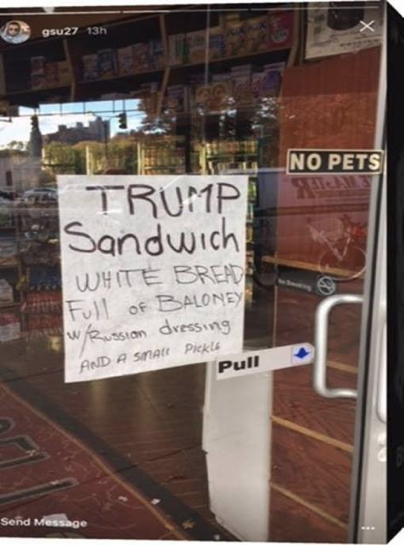 gsu27 13h
NO PETS
TRUMP
Sandwich
WHITE BREAD
Full of BALONEY
W/Russian dressing
AND A SMALL PICKLE
No Smoking
Pull
Send Message